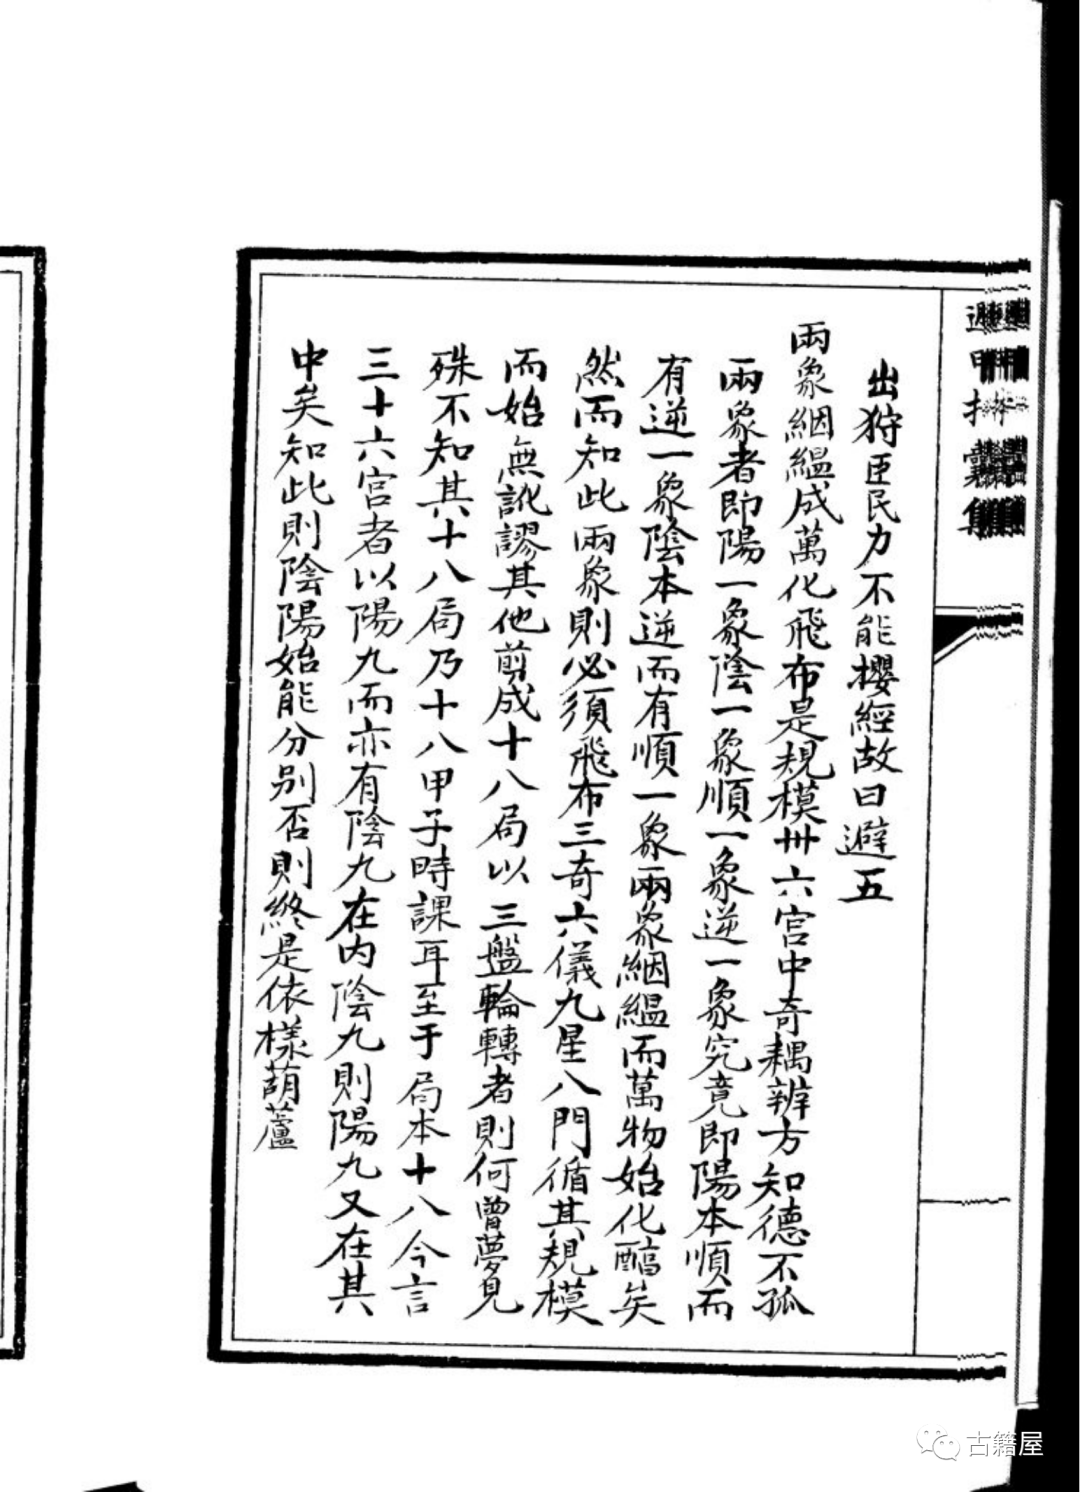 出狩臣民力不能攖經故曰避五
兩象絪縕成萬化飛布是規模卅六宮中奇耦辨方知德不孤
兩象者即陽一象陰一象順一象逆一象究竟即陽本順而
有逆一象陰本逆而有順一象兩象絪縕而萬物始化醕矣
然而知此兩象則必須飛布三奇六儀九星八門循其規模
而始無訛謬其他剪成十八局以三盤輪轉者則何曾夢見
殊不知其十八局乃十八甲子時課耳至于局本十八今言
三十六宮者以陽九而亦有陰九在內陰九則陽九又在其
中矣知此則陰陽始能分別否則終是依樣葫蘆
古籍屋